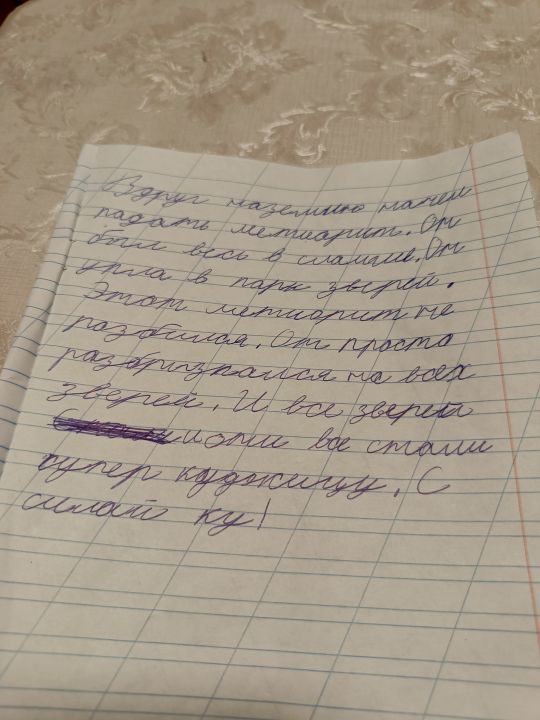 Вдруг наземлю начел
падать метиорит. Он
был весь в слаиме. Он
упла в парк зверей.
Этот метиорит не
разбился. Он просто
разбрызкался на всех
зверей. И все зверей
и они все стали
супер куджицу. С
силай ку!